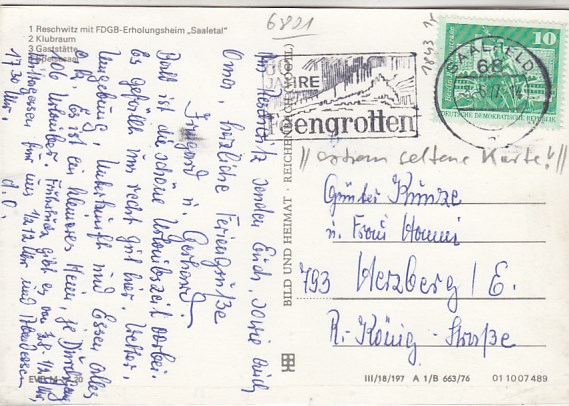 1 Reschwitz mit FDGB-Erholungsheim „Saaletal"
2 Klubraum
3 Gaststätte
4 Speisesaal
6821
1843
JAHRE
Feengrotten
SAALFELD
68
10
DEUTSCHE DEMOKRATISCHE REPUBLIK
// extrem seltene Karte! //
Günter Kunze
u. Frau Hanni
793 Herzberg / E.
R.-König-Straße
Aus Reschwitz senden Euch, sowie auch
Oma, herzliche Feriengrüße
Irmgard u. Gerhard.
Bald ist die schöne Urlaubszeit vorbei.
Es gefällt uns recht gut hier. Wetter,
Umgebung, Unterkunft und Essen alles
o.k. Es ist ein kleineres Heim, je Durchgang
106 Urlauber. Frühstück gibt es von
Mittagessen für uns 1/2 12 Uhr und Abendessen
17.30 Uhr.
d. O.
BILD UND HEIMAT · REICHENBACH (VOGTL)
III/18/197 A 1/B 663/76 01 10 07 489